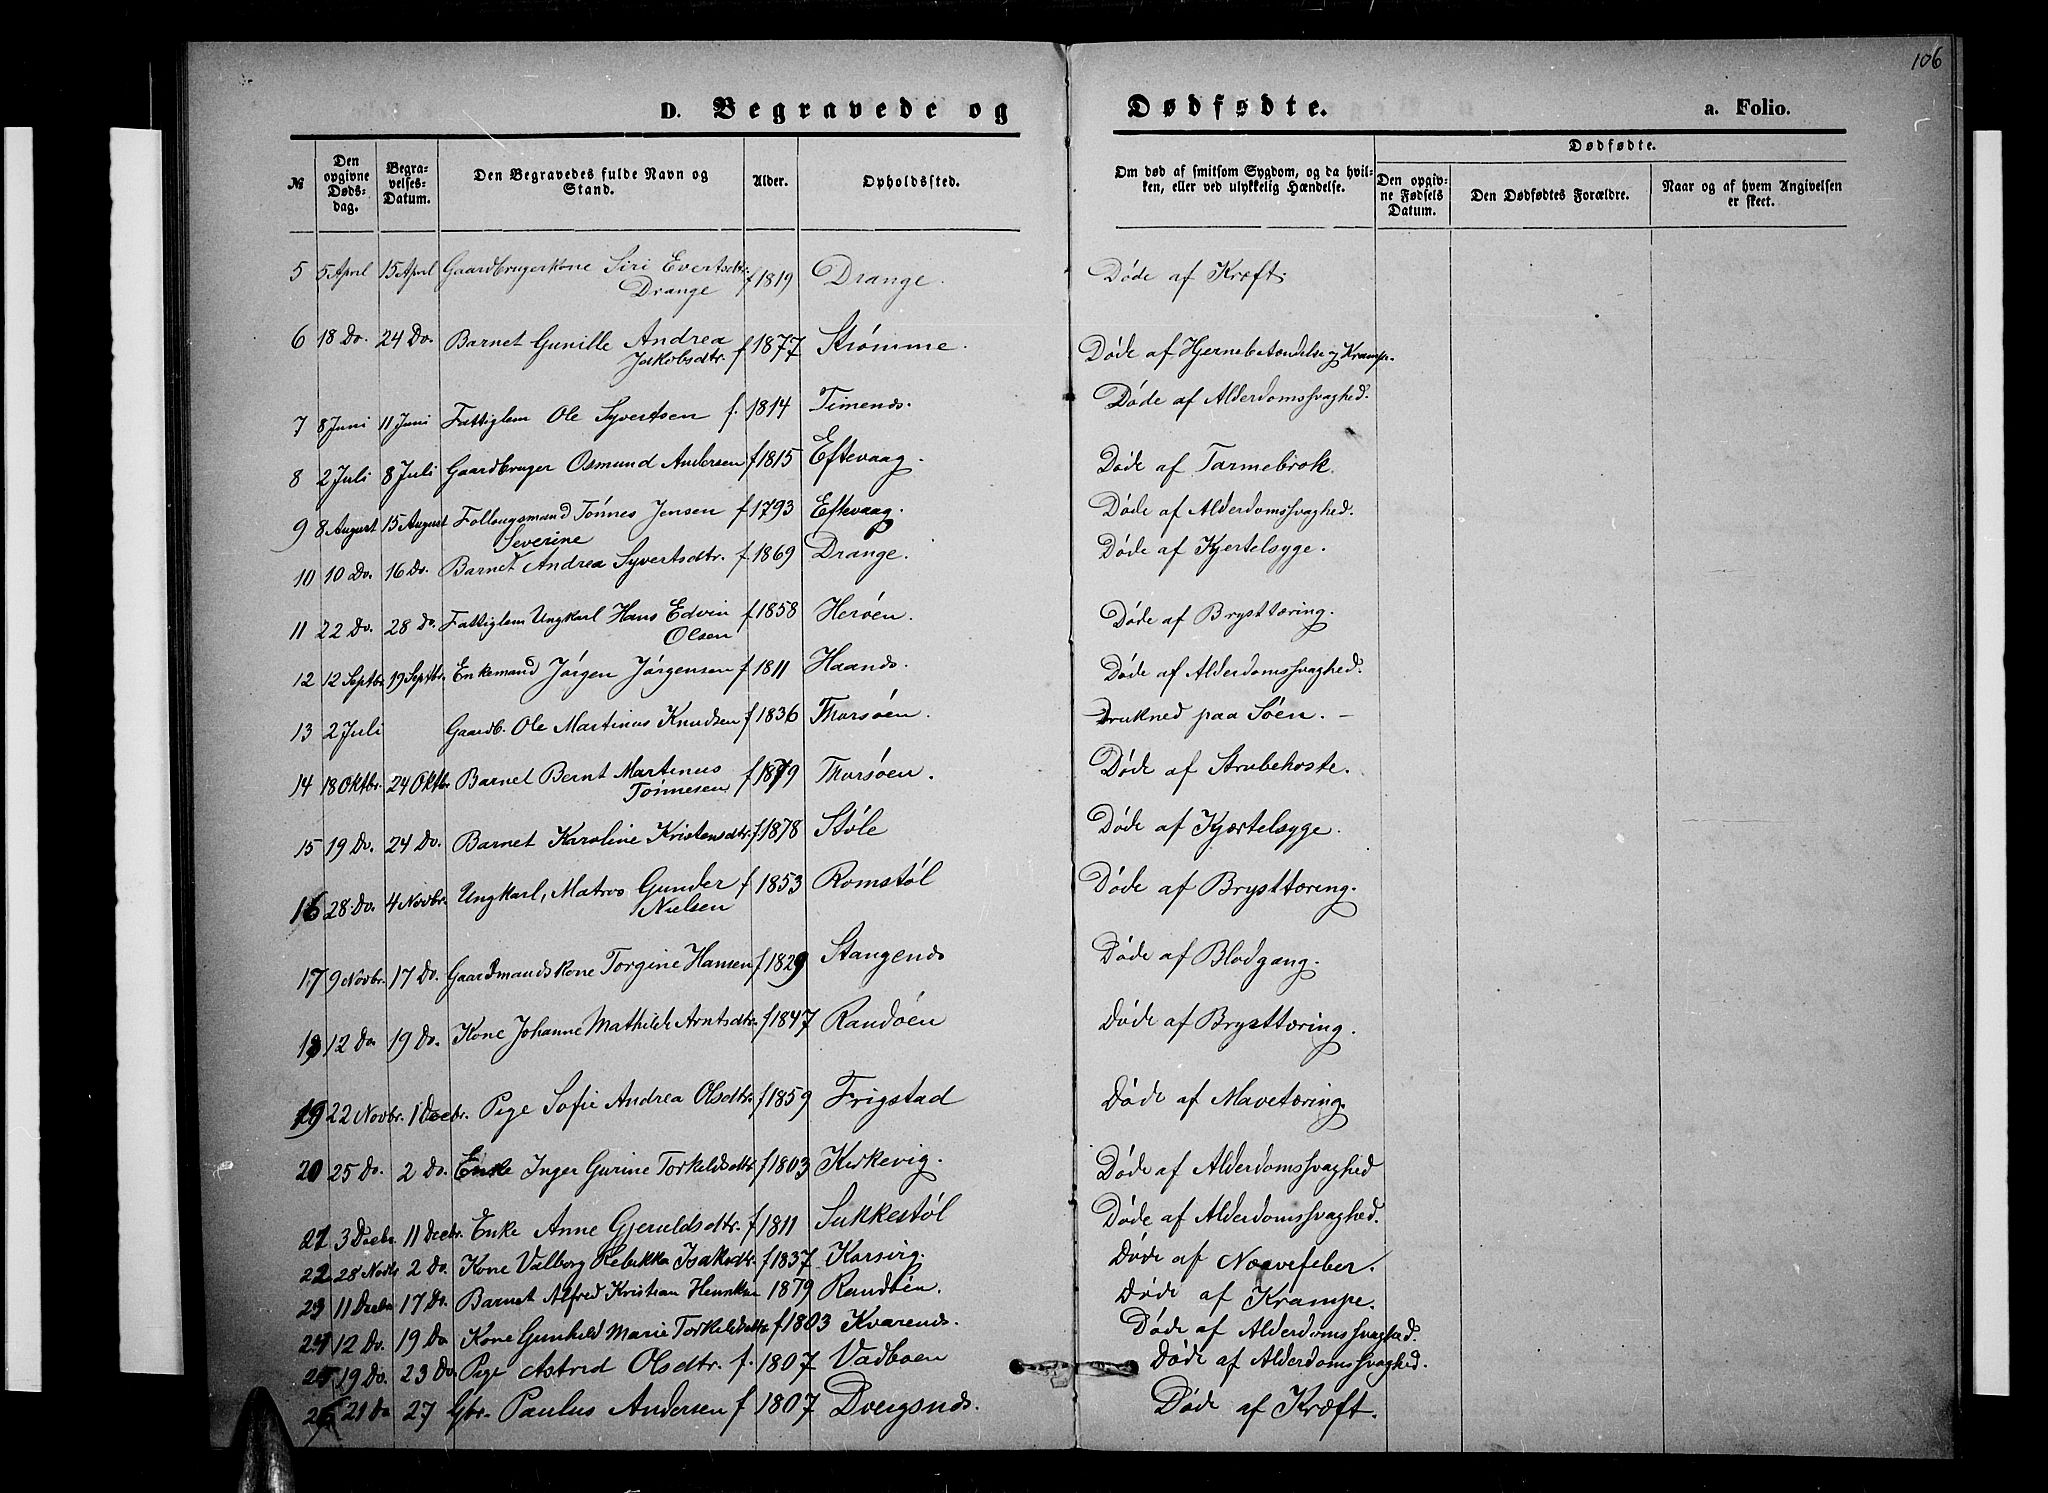 106
D. Begravede og Dødfødte. a. Folio.
№ Den opgivne Døds-dag. Begra-velses-Datum. Den Begravedes fulde Navn og Stand. Alder. Opholdssted. Om død af smitsom Sygdom, og da hvil-ken, eller ved ulykkelig Hændelse. Dødfødte. Den opgiv-ne Fødsels Datum. Den Dødfødtes Forældre. Naar og af hvem Angivelsen er skeet.
5 5 April 15 April Gaardbrugerkone Siri Evertsdtr. Drange f 1819 Drange. Døde af Kræft.
6 18 Do. 24 Do. Barnet Gunille Andrea Jakobsdtr. f 1877 Strømme. Døde af Hjernebetændelse og Krampe.
7 8 Juni 11 Juni Fattiglem Ole Syvertsen f. 1814 Timends. Døde af Alderdomssvaghed.
8 2 Juli 8 Juli Gaardbruger Osmund Andersen f 1815 Eftevaag. Døde af Tarmebrok.
9 8 August 15 August Follougsmand Tönnes Jensen f 1793 Eftevaag. Døde af Alderdomssvaghed.
10 10 Do. 16 Do. Barnet Severine Andrea Syvertsdtr. f 1869 Drange. Døde af Kjertelsyge.
11 22 Do. 28 Do. Fattiglem Ungkarl Hans Edvin Olsen f 1858 Herøen. Døde af Brysttæring.
12 12 Septbr. 19 Septbr. Enkemand Jørgen Jørgensen f 1811 Haands. Døde af Alderdomssvaghed.
13 2 Juli Gaardb. Ole Martinus Knudsen f 1836 Thorsøen. Drukned paa Søen. –
14 18 Oktbr. 24 Oktbr. Barnet Bernt Martinus Tønnesen f 1879 Thorsøen. Døde af Strubehoste.
15 19 Do. 24 Do. Barnet Karoline Kristensdtr. f 1878 Støle Døde af Kjærtelsyge.
16 28 Do. 4 Novbr. Ungkarl, Matros Gunder Nielsen f 1853 Romstøl Døde af Brysttæring.
17 9 Novbr. 17 Do. Gaardmandskone Torgine Hansen f 1829 Stangends Døde af Blodgang.
18 12 Do 19 Do. Kone Johanne Mathilde Arntsdtr. f 1847 Randøen Døde af Brysttæring.
19 22 Novbr. 1 Decbr. Pige Sofie Andrea Olsdtr. f 1859 Frigstad Døde af Mavetæring.
20 25 Do. 2 Do. Enke Inger Gurine Torkeldsdtr f 1803 Kirkevig. Døde af Alderdomssvaghed
21 3 Decbr. 11 Decbr. Enke Anne Gjeruldsdtr. f 1811 Sukkestøl Døde af Alderdomssvaghed.
22 28 Novb 2 Do. Kone Valborg Rebekka Isaksdtr. f 1837 Korsvig. Døde af Nærvefeber.
23 11 Decbr 17 Do. Barnet Alfred Kristian Henriksen 1879 Randøen. Døde af Krampe.
24 12 Do. 19 Do Kone Gunhild Marie Torkeldsdtr f 1803 Kvarends. Døde af Alderdomssvaghed.
25 19 Do. 23 Do. Pige Astrid Olsdtr. f. 1807 Vadboen Døde af Alderdomssvaghed.
26 21 Do 27 Gbr. Paulus Andersen f 1807 Dvergsnds. Døde af Kræft.